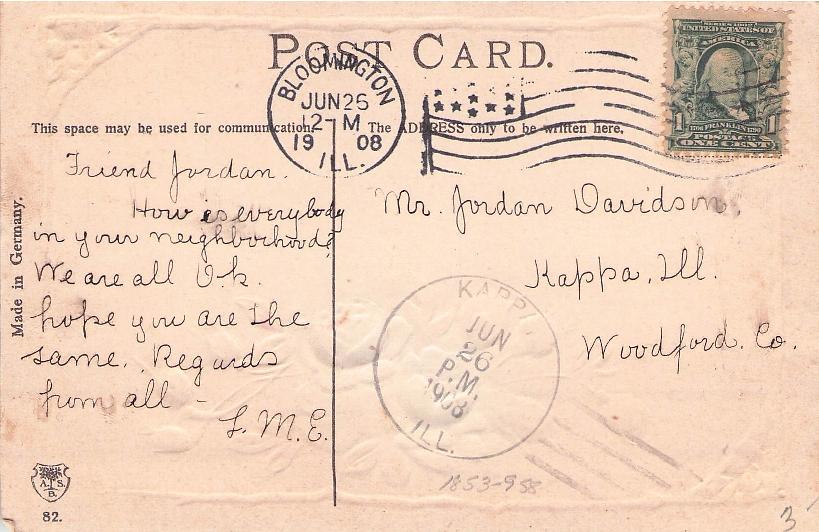 POST CARD.
SERIES 1902
UNITED STATES OF
AMERICA
1 FRANKLIN 1
POSTAGE
ONE CENT
BLOOMINGTON
JUN 26
12- M
19 08
ILL.
This space may be used for communication.
The ADDRESS only to be written here.
Made in Germany.
Friend Jordan.
How is everybody
in your neighborhood?
We are all O.k.
hope you are the
same. Regards
from all –
L. M. E.
Mr. Jordan Davidson,
Kappa, Ill.
Woodford. Co.
KAPPA
JUN
26
P.M.
1908
ILL.
1853-958
A. S.
B.
82.
3